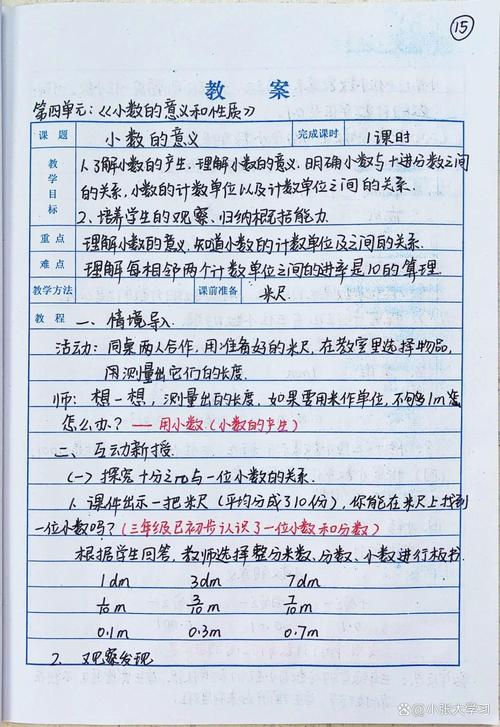 15
教 案
第四单元:《小数的意义和性质》
课 题 小数的意义 完成课时 1课时
教学目标 1、了解小数的产生、理解小数的意义、明确小数与十进分数之间
的关系,小数的计数单位以及计数单位之间的关系.
2、培养学生的观察、归纳概括能力.
重 点 理解小数的意义,知道小数的计数单位及之间的关系.
难 点 理解每相邻两个计数单位之间的进率是10的算理.
教学方法 课前准备 米尺.
教 程 一、情境导入.
活动:同桌两人合作,用准备好的米尺,在教室里选择物品,
用测量出它们的长度.
师:想一想,测量出的长度,如果要用米作单位,不够1m
怎么办?—用小数(小数的产生)
二、互动新授.
(一)探究十分之几与一位小数的关系.
1、课件出示一把米尺(平均分成了10份),你能在米尺上找到
一位小数吗?(三年级已初步认识了一位小数和分数)
根据学生回答,教师选择整分米数、分数、小数进行板书.
1dm 3dm 7dm
1/10 m 3/10 m 7/10 m
0.1m 0.3m 0.7m
2、观察发现
@小张大学习